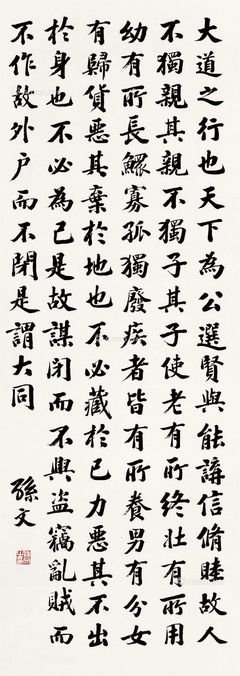 大道之行也天下為公選賢與能講信脩睦故人
不獨親其親不獨子其子使老有所終壯有所用
幼有所長鰥寡孤獨廢疾者皆有所養男有分女
有歸貨惡其棄於地也不必藏於己力惡其不出
於身也不必為己是故謀閉而不興盜竊亂賊而
不作故外戶而不閉是謂大同
孫文